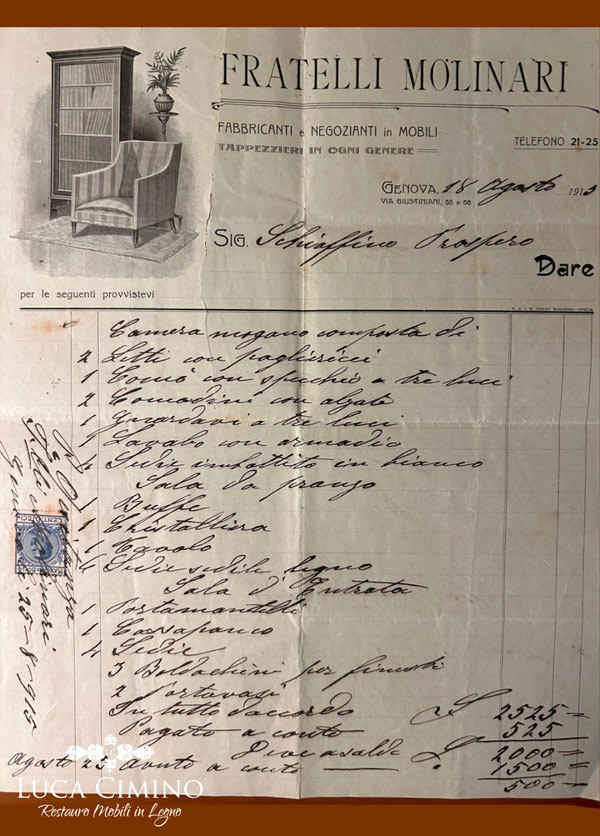 FRATELLI MOLINARI
FABBRICANTI e NEGOZIANTI in MOBILI
TAPPEZZIERI IN OGNI GENERE
TELEFONO 21-25
GENOVA, 18 Agosto 191
VIA GIUSTINIANI, 55 e 66
SIG. Schiaffino Prospero
Dare
per le seguenti provvistevi
Camera mogano composta di
2 Letti con pagliericci
1 Comò con specchio a tre luci
2 Comodini con alzate
1 Guardavi a tre luci
1 Lavabo con armadio
4 Sedie imbottito in bianco
Sala da pranzo
1 Buffe
1 Christalliera
1 Tavolo
Sedie sedile legno
Sala d'Entrata
1 Portamantelli
1 Cassapanco
4 Sedie
3 Baldachini per finestri
2 Portavasi
In tutto d'accordo £ 2525=
Pagato a conto 525
Deve a saldo £. 2000=
Agosto 25 avuto a conto 1500=
500=
Quitanza
F.lli Molinari
25-8-915
LUCA CIMINO
Restauro Mobili in Legno